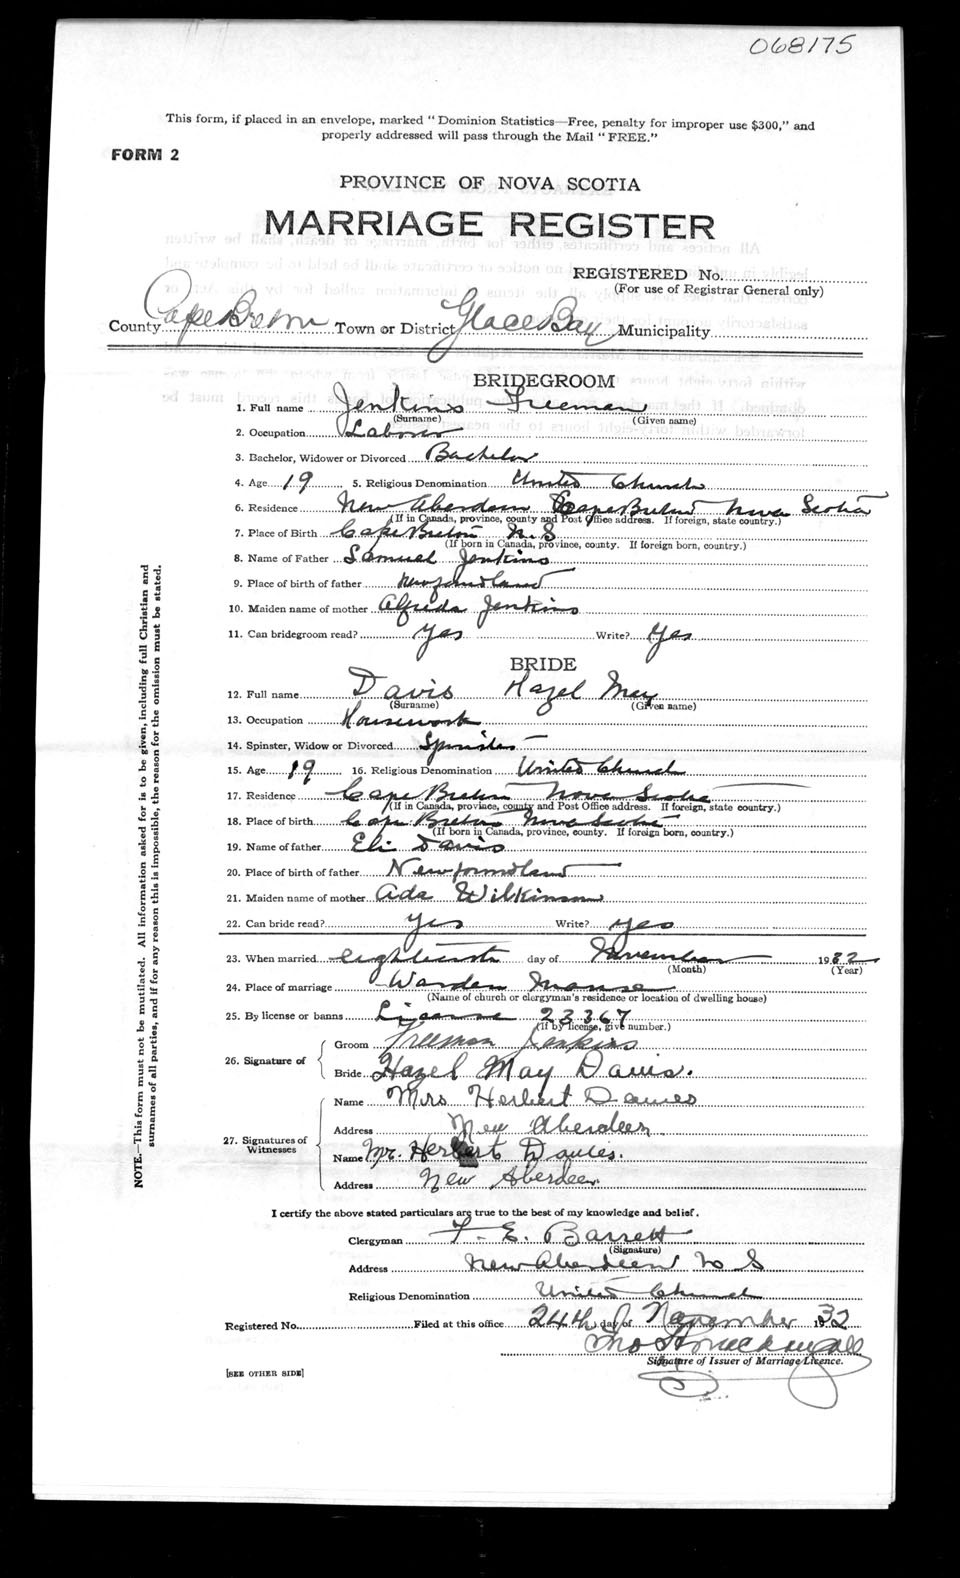 068175
This form, if placed in an envelope, marked "Dominion Statistics—Free, penalty for improper use $300," and
properly addressed will pass through the Mail "FREE."
FORM 2
PROVINCE OF NOVA SCOTIA
MARRIAGE REGISTER
REGISTERED No.
(For use of Registrar General only)
County Cape Breton Town or District Glace Bay Municipality
BRIDEGROOM
1. Full name Jenkins Freeman
(Surname) (Given name)
2. Occupation Laborer
3. Bachelor, Widower or Divorced Bachelor
4. Age 19 5. Religious Denomination United Church
6. Residence New Aberdeen Cape Breton Nova Scotia
(If in Canada, province, county and Post Office address. If foreign, state country.)
7. Place of Birth Cape Breton N.S
(If born in Canada, province, county. If foreign born, country.)
8. Name of Father Samuel Jenkins
9. Place of birth of father Newfoundland
10. Maiden name of mother Alfreda Jenkins
11. Can bridegroom read? Yes Write? Yes
BRIDE
12. Full name Davis Hazel May
(Surname) (Given name)
13. Occupation Housework
14. Spinster, Widow or Divorced Spinster
15. Age 19 16. Religious Denomination United Church
17. Residence Cape Breton Nova Scotia
(If in Canada, province, county and Post Office address. If foreign, state country.)
18. Place of birth Cape Breton Nova Scotia
(If born in Canada, province, county. If foreign born, country.)
19. Name of father Eli Davis
20. Place of birth of father Newfoundland
21. Maiden name of mother Ada Wilkinson
22. Can bride read? yes Write? yes
23. When married eighteenth day of November 1932
(Month) (Year)
24. Place of marriage Warden Manse
(Name of church or clergyman's residence or location of dwelling house)
25. By license or banns License 23367
(If by license, give number.)
26. Signature of
Groom Freeman Jenkins
Bride Hazel May Davis.
27. Signatures of Witnesses
Name Mrs Herbert Davies
Address New Aberdeen
Name Mr. Herbert Davies.
Address New Aberdeen
I certify the above stated particulars are true to the best of my knowledge and belief.
Clergyman F. E. Barrett
(Signature)
Address New Aberdeen N S
Religious Denomination United Church
Registered No. Filed at this office 24th day of November 1932
Signature of Issuer of Marriage Licence.
[SEE OTHER SIDE]
NOTE.—This form must not be mutilated. All information asked for is to be given, including full Christian and
surnames of all parties, and if for any reason this is impossible, the reason for the omission must be stated.